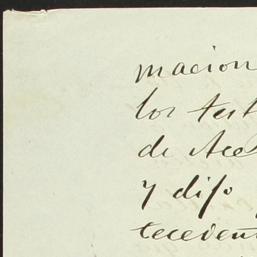 macion
los test
de Ace
y dijo
tecedent